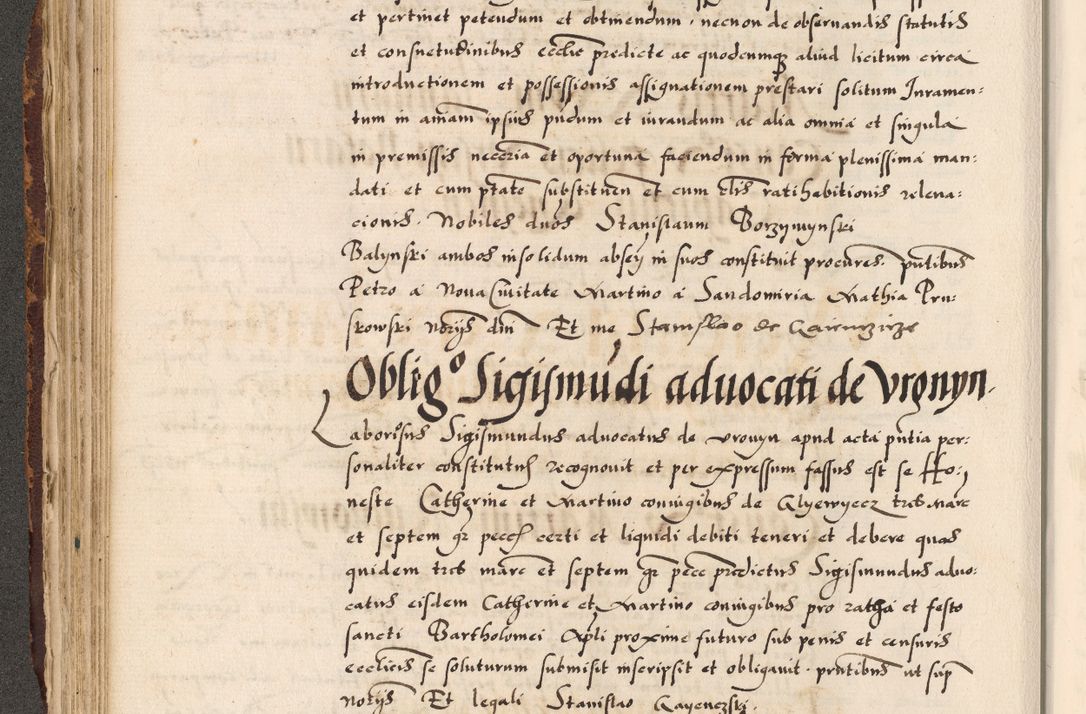 et pertinet petendum et obtinendum . necnon de observandis statutis
et consuetudinibus ecclie predicte ac quodcumque aliud licitum circa
introductionem et possessionis assignationem prestari solitum Juramen:
tum in aniam ipsius pndum et iurandum ac alia omnia et singula
in premissis necria et oportuna faciendum in forma plenissima man:
dati et cum ptate substituen et cum clis ratihabitionis releva:
cionis . Nobiles duos Stanislaum Borzymynski
Balynski ambos insolidum absen in suos constituit procures . pntibus
Petro a Nova Civitate Martino a Sandomiria Mathia Pru:
skowski notys dni Et me Stanislao de
Oblig⁰ Sigismūdi aduocati de Vronyn .
Laboriosus Sigismundus advocatus de vronyn apud acta pntia per:
sonaliter constitutus recognovit et per expressum fassus est se Ho:
neste Catherine et Martino coniugibus de Glyewycz tres marc
et septem gr pecc certi et liquidi debiti teneri et debere quas
quidem tres marc et septem gr pecc predictus Sigismundus advo:
catus eisdem Catherine et Martino coniugibus pro ratha et festo
sancti Bartholomei Apli proxime futuro sub penis et censuris
ecclicis se soluturum submisit inscripsit et obligavit . pntibus ut sup
notys Et legali Stanislao